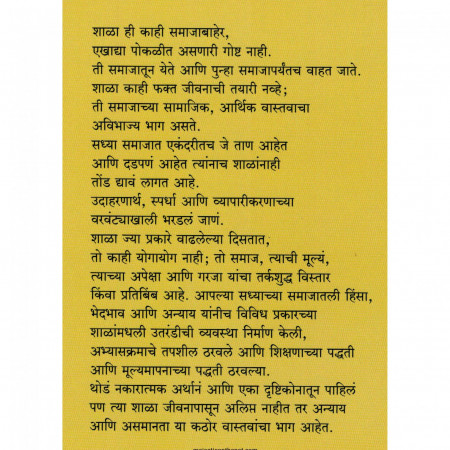 शाळा ही काही समाजाबाहेर,
एखाद्या पोकळीत असणारी गोष्ट नाही.
ती समाजातून येते आणि पुन्हा समाजापर्यंतच वाहत जाते.
शाळा काही फक्त जीवनाची तयारी नव्हे;
ती समाजाच्या सामाजिक, आर्थिक वास्तवाचा
अविभाज्य भाग असते.
सध्या समाजात एकंदरीतच जे ताण आहेत
आणि दडपणं आहेत त्यांनाच शाळांनाही
तोंड द्यावं लागत आहे.
उदाहरणार्थ, स्पर्धा आणि व्यापारीकरणाच्या
वरवंट्याखाली भरडलं जाणं.
शाळा ज्या प्रकारे वाढलेल्या दिसतात,
तो काही योगायोग नाही; तो समाज, त्याची मूल्यं,
त्याच्या अपेक्षा आणि गरजा यांचा तर्कशुद्ध विस्तार
किंवा प्रतिबिंब आहे. आपल्या सध्याच्या समाजातली हिंसा,
भेदभाव आणि अन्याय यांनीच विविध प्रकारच्या
शाळांमधली उतरंडीची व्यवस्था निर्माण केली,
अभ्यासक्रमाचे तपशील ठरवले आणि शिक्षणाच्या पद्धती
आणि मूल्यमापनाच्या पद्धती ठरवल्या.
थोडं नकारात्मक अर्थानं आणि एका दृष्टिकोनातून पाहिलं
पण त्या शाळा जीवनापासून अलिप्त नाहीत तर अन्याय
आणि असमानता या कठोर वास्तवांचा भाग आहेत.